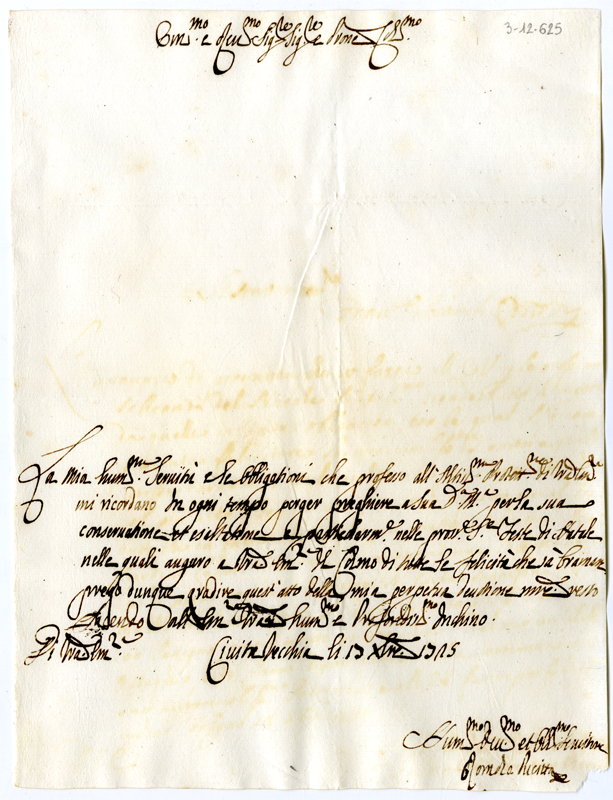 3-12-625
Em.mo e Reu.mo Sig.re Sig.re e Prone Col.mo
La mia hum.ma Seruitù e le obligationi che professo all' di Vra Em.za
mi ricordano in ogni tempo porger preghiere a Sua D. M.tà per la sua
conseruatione et esaltatione e nelle S.te Feste di Natale
nelle quali auguro a Vra Em.za il Colmo di tutte le felicità che sà bramare
prego dunque gradire quest'atto della mia perpetua deuotione mentre resto
facendo all' Em.za Vra hum.mo e inchino.
Di Vra Em.za Ciuita Vecchia li 13 Xbre
Hum.mo Deu.mo et Obl.mo Seruitore